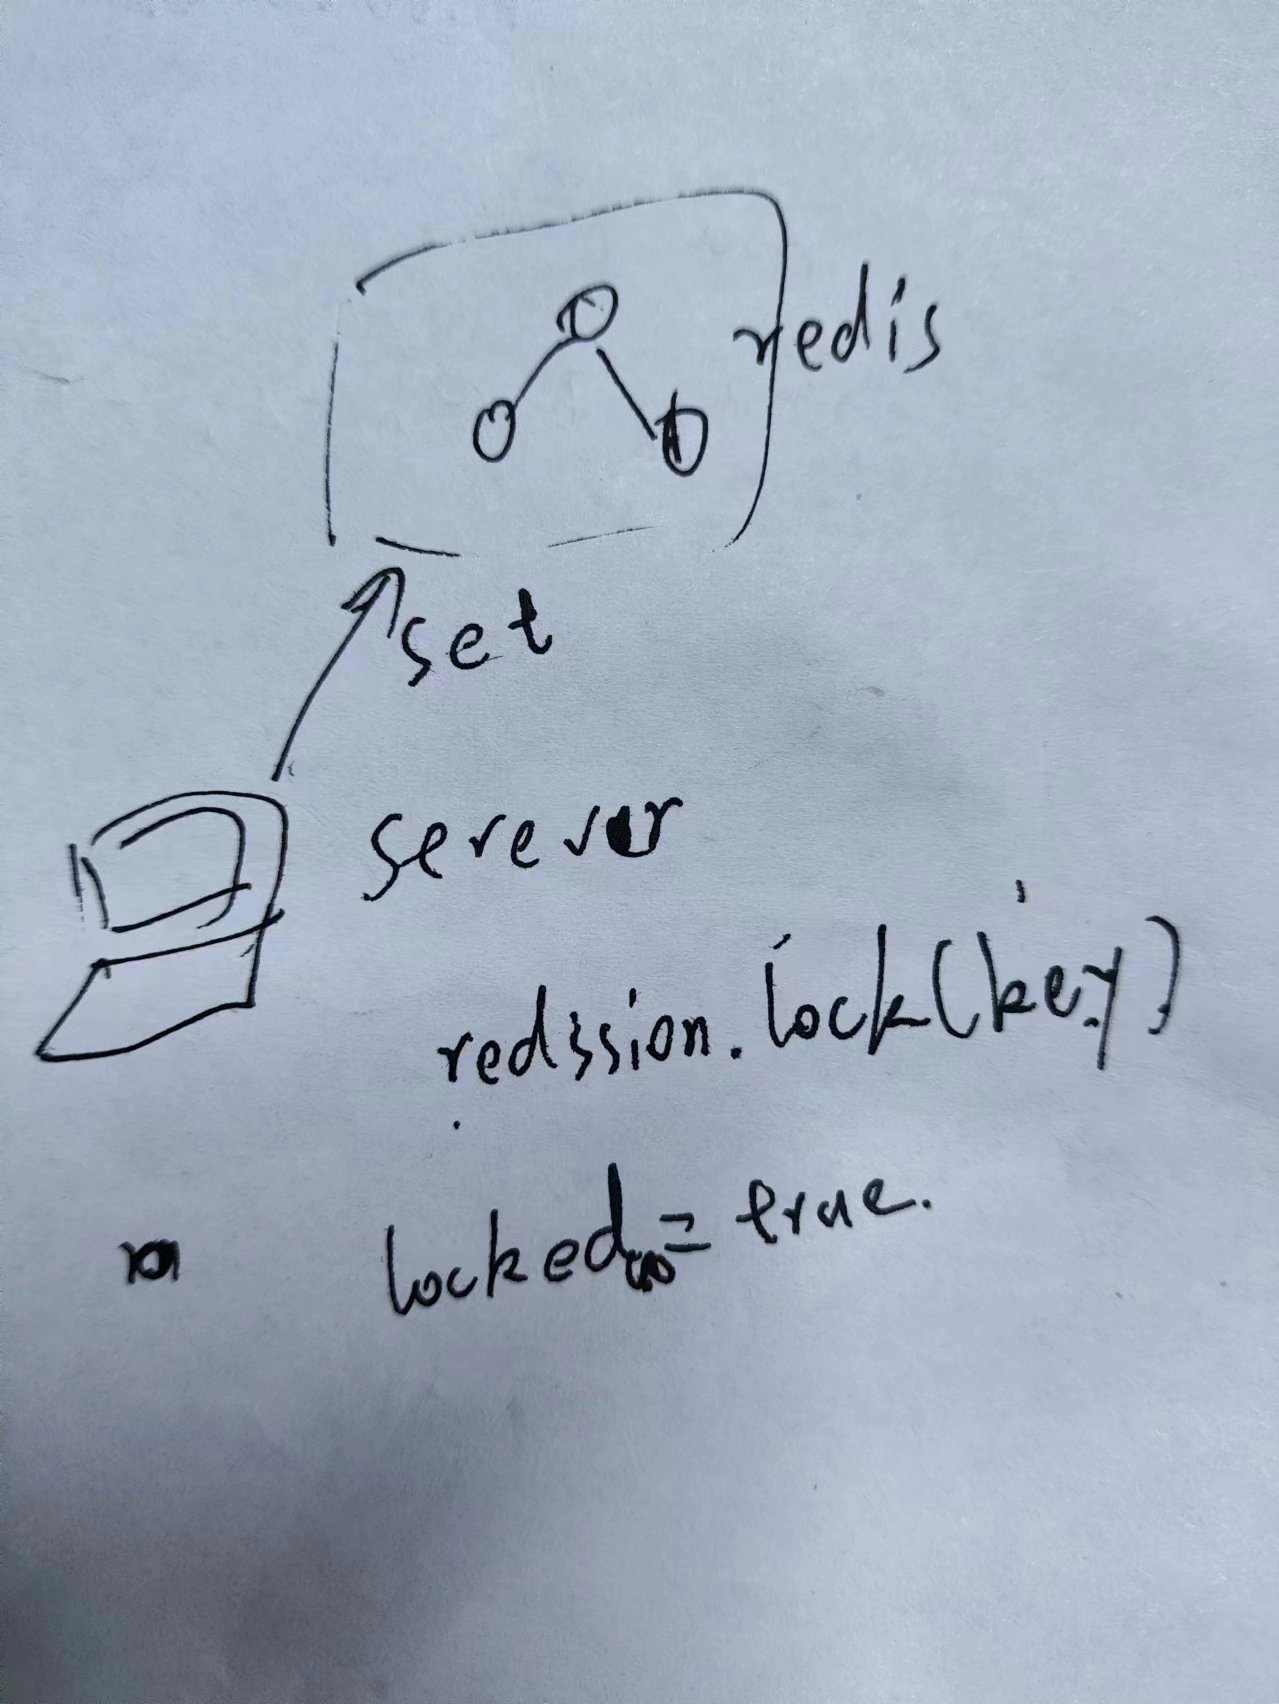 redis
set
serever
redission.lock(key)
locked = true.